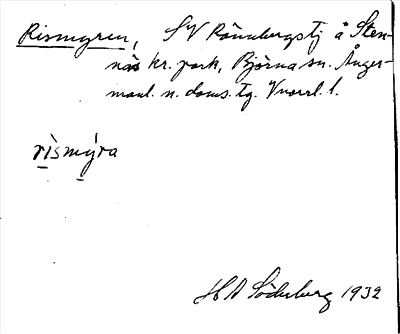 Rismyren, SV Rönnbergstj å Sten-
näs kr. park, Björna sn. Ånger-
manl. n. doms. tg. Vnorrl. l.
rismýra
H A Söderberg 1932